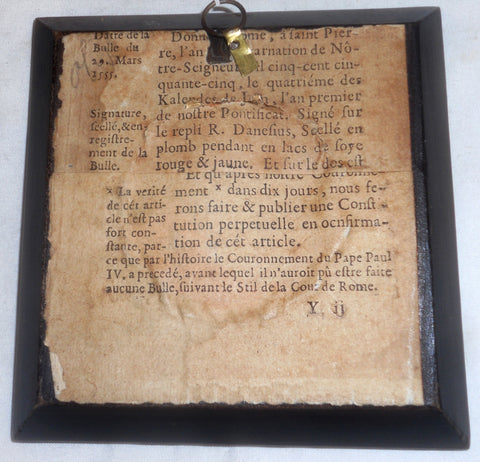 Datte de la
Bulle du
29. Mars
1555.
Signature,
scellé, & en-
registre-
ment de la
Bulle.
à saint Pier-
re, l'an
arnation de Nô-
tre-Seigneur
il cinq-cent cin-
quante-cinq, le quatriéme des
Kalendes de
l'an premier
de nostre Pontificat. Signé sur
le repli R. Danesius, Scellé en
plomb pendant en lacs de soye
rouge & jaune. Et sur le dos est
Et qu'après nostre Couronne-
ment x dans dix jours, nous fe-
rons faire & publier une Const
tution perpetuelle en ocnfirma-
tion de cét article.
x La verité
de cét arti-
cle n'est pas
fort con-
stante, par-
ce que par l'histoire le Couronnement du Pape Paul
IV. a precedé, avant lequel il n'auroit pû estre faite
aucune Bulle, suivant le Stil de la Cour de Rome.
Y ij